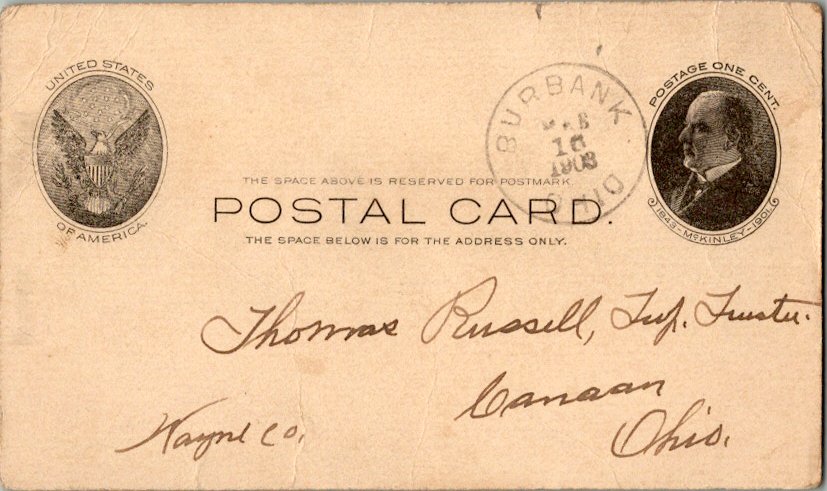 UNITED STATES
OF AMERICA.
POSTAGE ONE CENT.
1843-McKINLEY-1901
BURBANK
MAR
10
1903
OHIO
THE SPACE ABOVE IS RESERVED FOR POSTMARK.
POSTAL CARD.
THE SPACE BELOW IS FOR THE ADDRESS ONLY.
Thomas Russell, Twp. Trustee.
Canaan
Wayne Co.
Ohio.